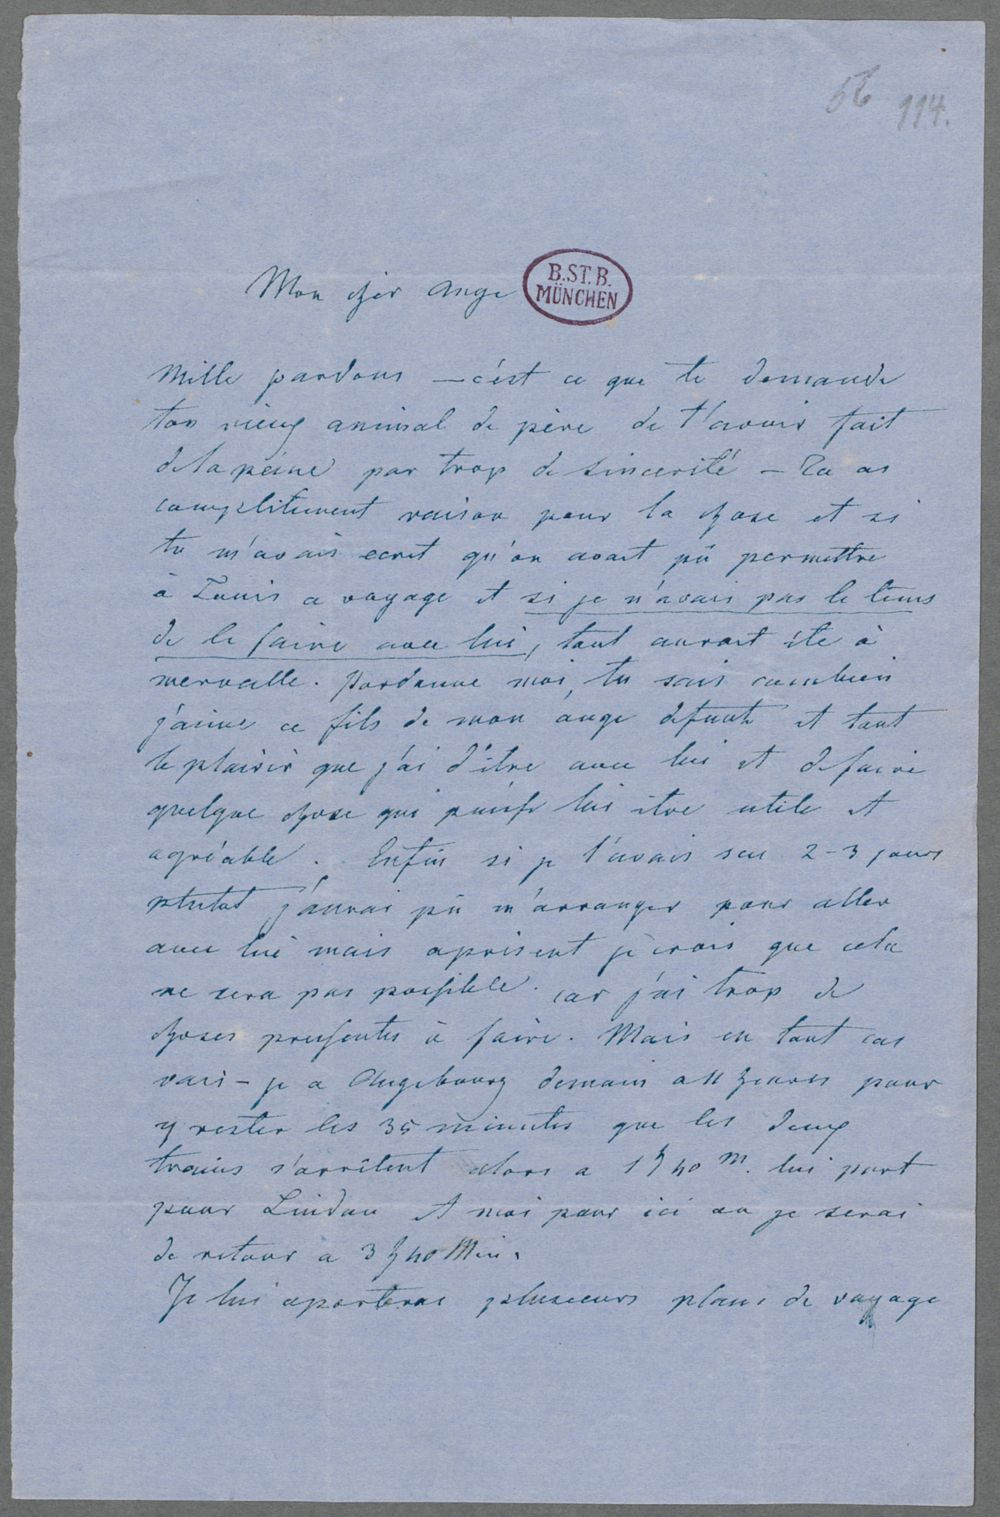 56
114.
Mon cher Ange
B.ST.B.
MÜNCHEN
Mille pardons – c'est ce que te demande
ton vieux animal de père de t'avoir fait
de la peine par trop de sincerité – Tu as
complitement raison pour la chose et si
tu m'avais ecrit qu'on avait pû permettre
à Louis ce voyage et si je n'avais pas le tems
de le faire avec lui, tout aurait été à
merveille. Pardonne moi, tu sais combien
j'aime ce fils de mon ange defunte et tout
le plaisir que j'ai d'être avec lui et de faire
quelque chose qui puisse lui être utile et
agréable. Enfin si je l'avais seu 2-3 jours
plutot j'aurai pû m'arranger pour aller
avec lui mais apresent je crois que cela
ne sera pas possible. car j'ai trop de
choses pressentes à faire. Mais en tout cas
vais-je a Augsbourg demain a 11 heures pour
y rester les 35 minutes que les deux
trains s'arrêtent alors a 1 h 40 m. lui part
pour Lindau et moi pour ici ou je serai
de retour a 3 h 40 Min.
Je lui aporterai plusieurs plans de voyage